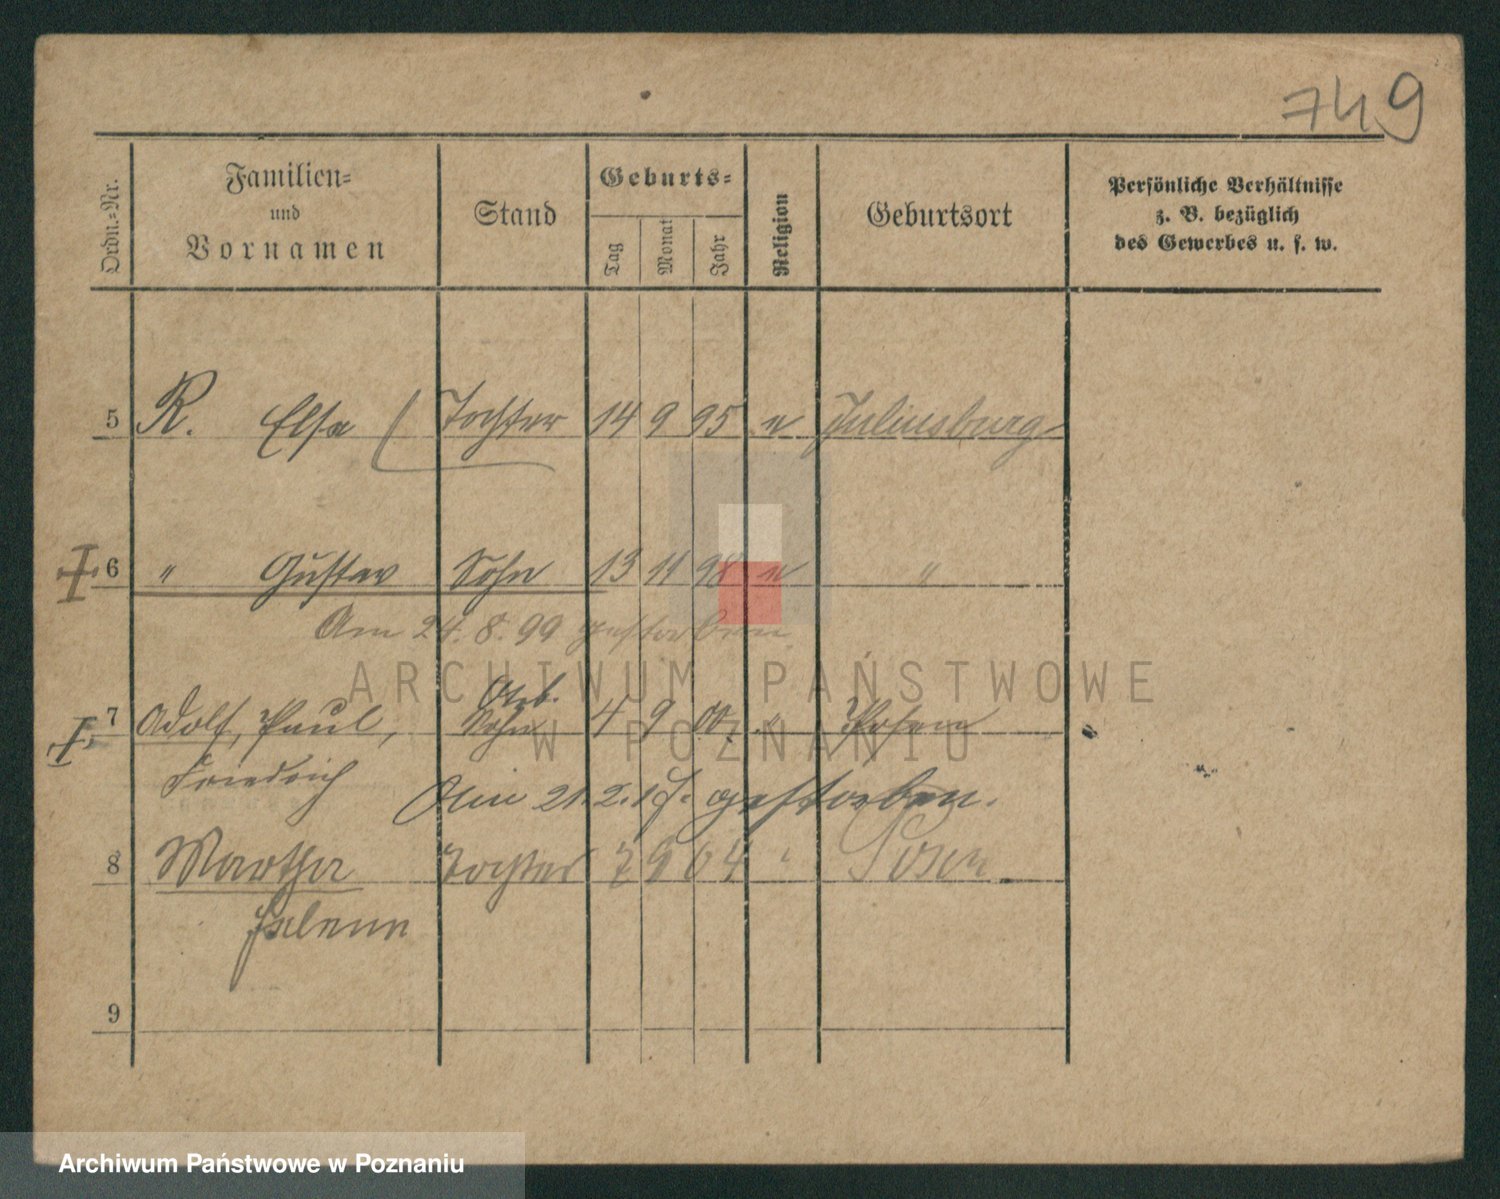 749
Ordn.-Nr.
Familien-
und
Vornamen
Stand
Geburts-
Tag
Monat
Jahr
Religion
Geburtsort
Persönliche Verhältnisse
z. B. bezüglich
des Gewerbes u. s. w.
5 R. Elsa Tochter 14 9 95 e Juliusburg
6 " Gustav Sohn 13 11 98 e "
Am 24. 8. 99 gestorben
ARCHIWUM PAŃSTWOWE
W POZNANIU
7 Adolf, Paul, Sohn 4 9 00 " Posen
Friedrich
Am 21. 2. gestorben.
8 Martha Tochter 7 9 04 " Posen
Helene
9
Archiwum Państwowe w Poznaniu